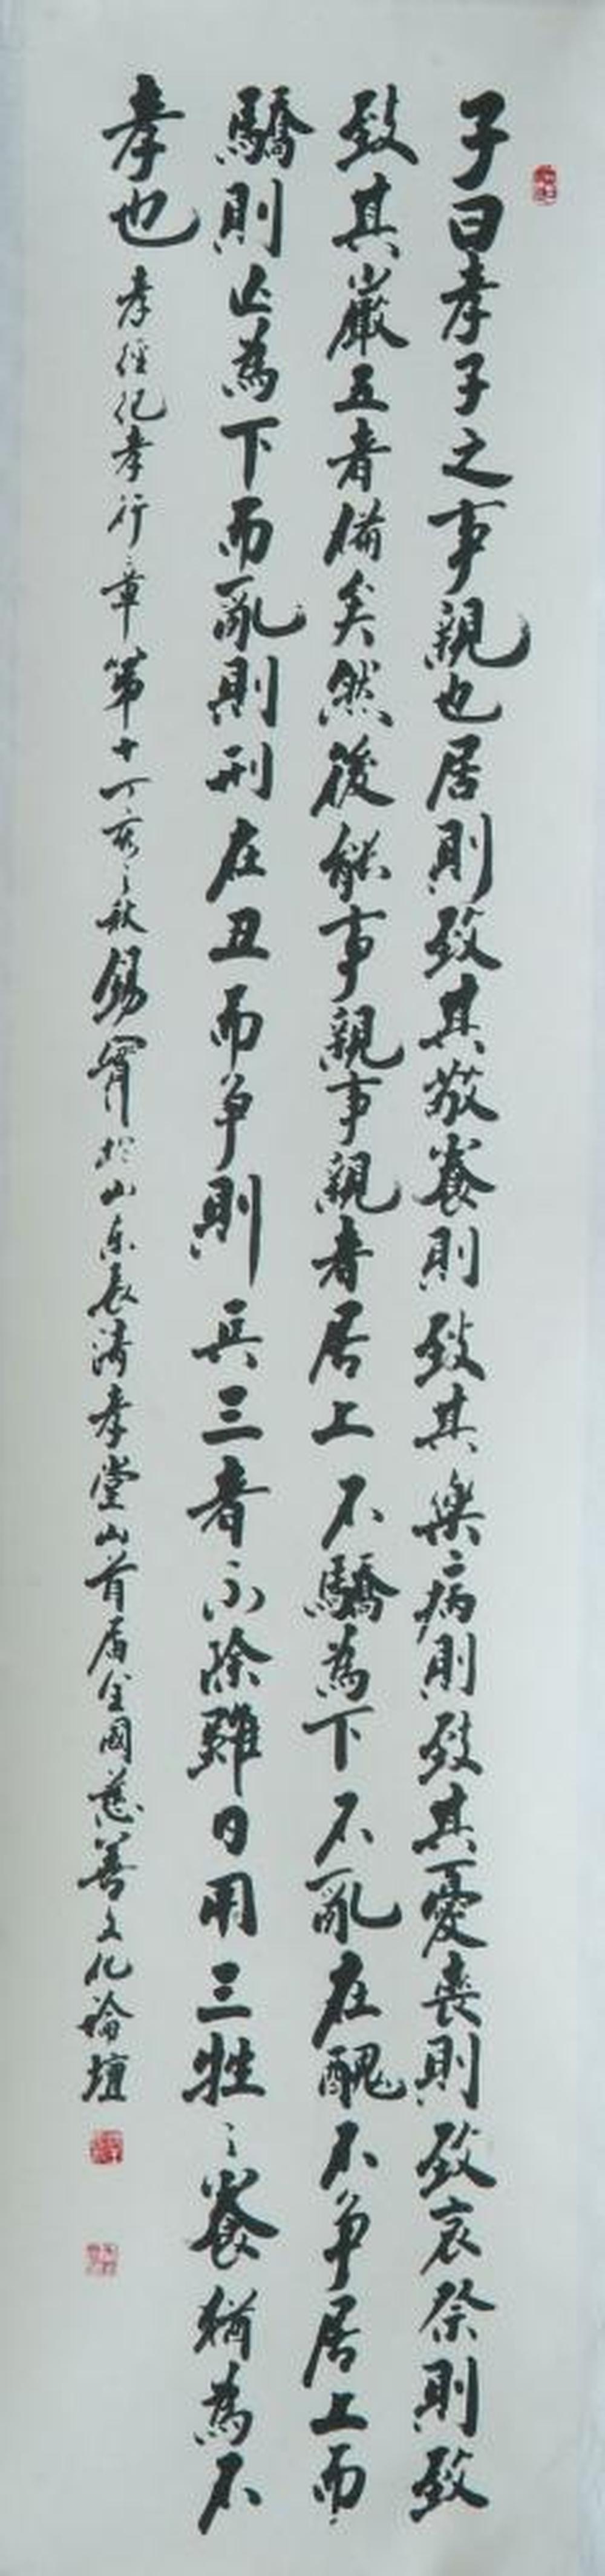 子曰孝子之事親也居則致其敬養則致其樂病則致其憂喪則致哀祭則致
致其嚴五者備矣然後能事親事親者居上不驕為下不亂在醜不争居上而
驕則亾為下而亂則刑在丑而争則兵三者不除雖日用三牲之養猶為不
孝也 孝經紀孝行章第十丁亥之秋錫於山东長清孝堂山首届全國慈善文化論壇